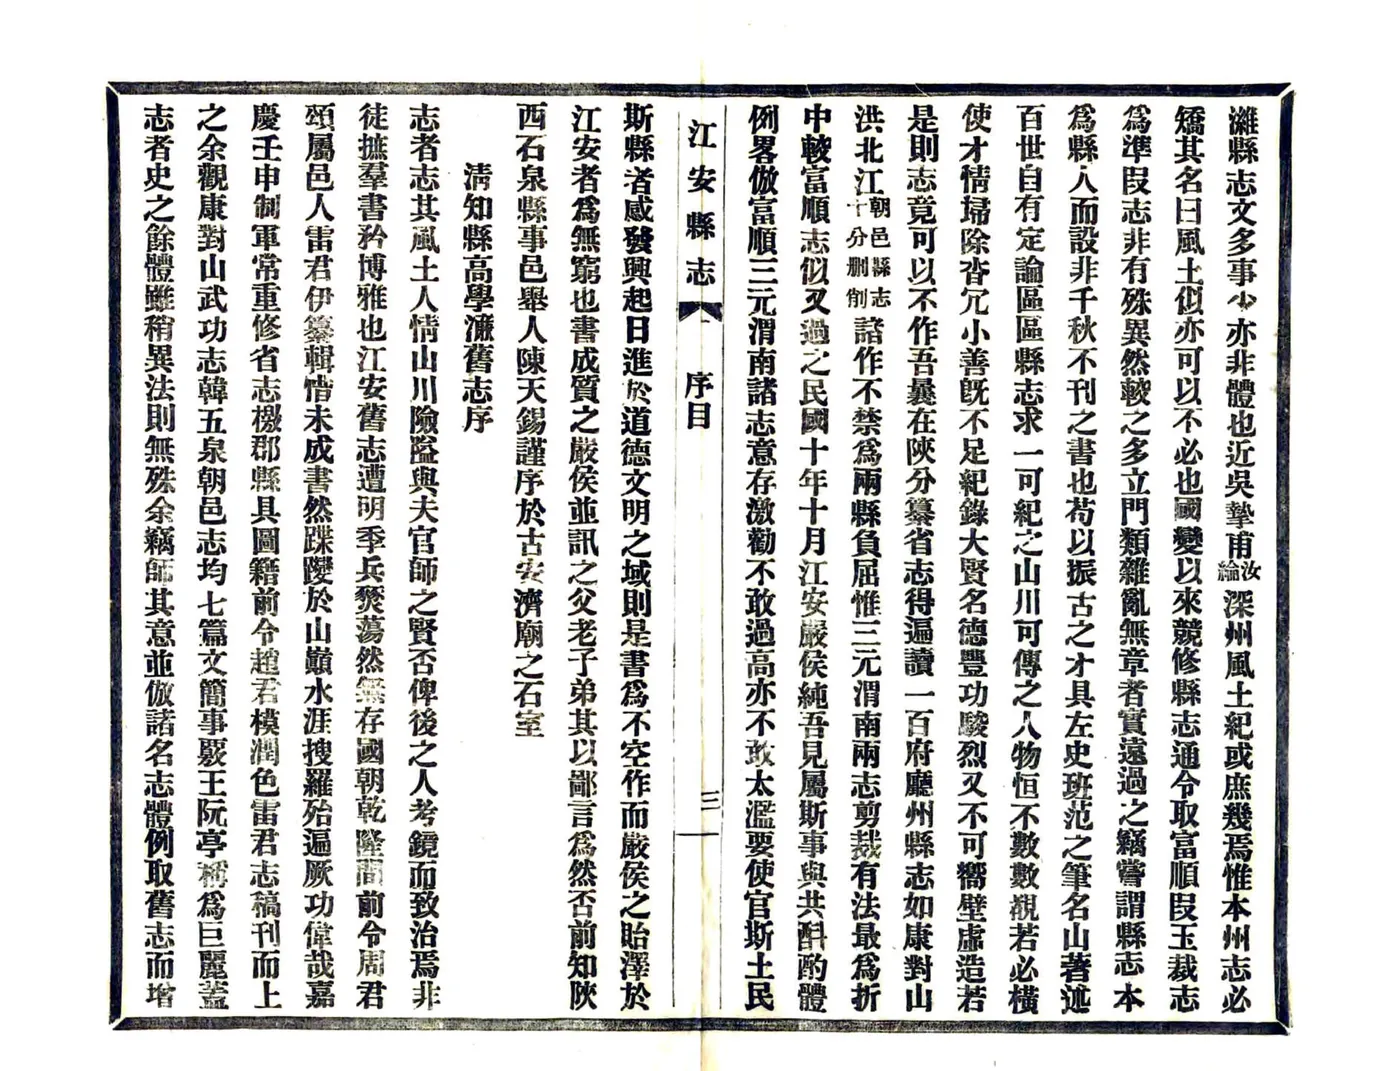 濰縣志文多事少亦非體也近吳摯甫汝綸深州風土紀或庶幾焉惟本州志必
矯其名曰風土似亦可以不必也國變以來競修縣志通令取富順段玉裁志
爲準段志非有殊異然較之多立門類雜亂無章者實遠過之竊嘗謂縣志本
爲縣人而設非千秋不刊之書也苟以振古之才具左史班范之筆名山著述
百世自有定論區區縣志求一可紀之山川可傳之人物恒不數數覯若必橫
使才情埽除沓冗小善旣不足紀錄大賢名德豐功駿烈又不可嚮壁虛造若
是則志竟可以不作吾曩在陝分纂省志得遍讀一百府廳州縣志如康對山
洪北江朝邑縣志十分刪削諸作不禁爲兩縣負屈惟三元渭南兩志剪裁有法最爲折
中較富順志似又過之民國十年十月江安嚴侯純吾見屬斯事與共斟酌體
例畧倣富順三元渭南諸志意存激勸不敢過高亦不敢太濫要使官斯土民
江安縣志 序目 三
斯縣者感發興起日進於道德文明之域則是書爲不空作而嚴侯之貽澤於
江安者爲無窮也書成質之嚴侯並訊之父老子弟其以鄙言爲然否前知陝
西石泉縣事邑舉人陳天錫謹序於古安濟廟之石室
清知縣高學濂舊志序
志者志其風土人情山川險隘與夫官師之賢否俾後之人考鏡而致治焉非
徒摭羣書矜博雅也江安舊志遭明季兵燹蕩然無存國朝乾隆間前令周君
頌屬邑人雷君伊纂輯惜未成書然蹀躞於山巔水涯搜羅殆遍厥功偉哉嘉
慶壬申制軍常重修省志檄郡縣具圖籍前令趙君模潤色雷君志稿刊而上
之余觀康對山武功志韓五泉朝邑志均七篇文簡事覈王阮亭稱爲巨麗蓋
志者史之餘體雖稍異法則無殊余竊師其意並倣諸名志體例取舊志而增